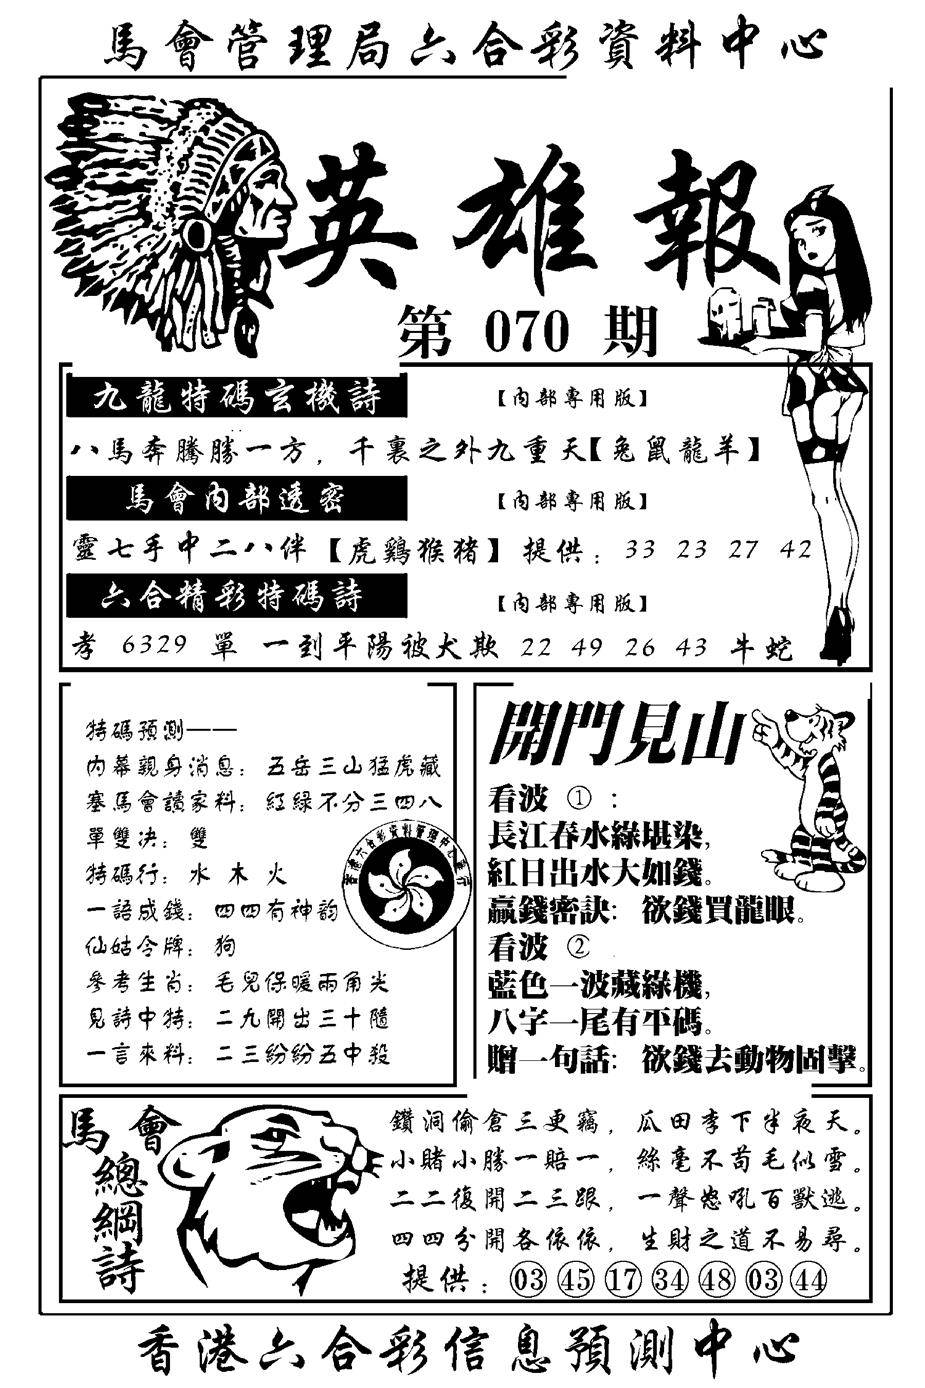 馬會管理局六合彩資料中心
英雄報
第 070 期
九龍特碼玄機詩
【內部專用版】
八馬奔騰勝一方，千裏之外九重天【兔鼠龍羊】
馬會內部透密
【內部專用版】
靈七手中二八伴【虎鷄猴猪】提供：33 23 27 42
六合精彩特碼詩
【內部專用版】
孝 6329 單 一到平陽被犬欺 22 49 26 43 牛蛇
特碼預測——
內幕親身消息：五岳三山猛虎藏
塞馬會讀家料：紅綠不分三四八
單雙决：雙
特碼行：水 木 火
一語成錢：四四有神韵
仙姑令牌：狗
參考生肖：毛兒保暖兩角尖
見詩中特：二九開出三十隨
一言來料：二三紛紛五中殺
開門見山
看波 ①：
長江春水綠堪染，
紅日出水大如錢。
贏錢密訣：欲錢買龍眼。
看波 ②
藍色一波藏綠機，
八字一尾有平碼。
贈一句話：欲錢去動物固擊。
馬會
總綱詩
鑽洞偷倉三更竊，瓜田李下半夜天。
小賭小勝一賠一，絲毫不苟毛似雪。
二二復開二三跟，一聲怒吼百獸逃。
四四分開各依依，生財之道不易尋。
提供：03 45 17 34 48 03 44
香港六合彩信息預測中心